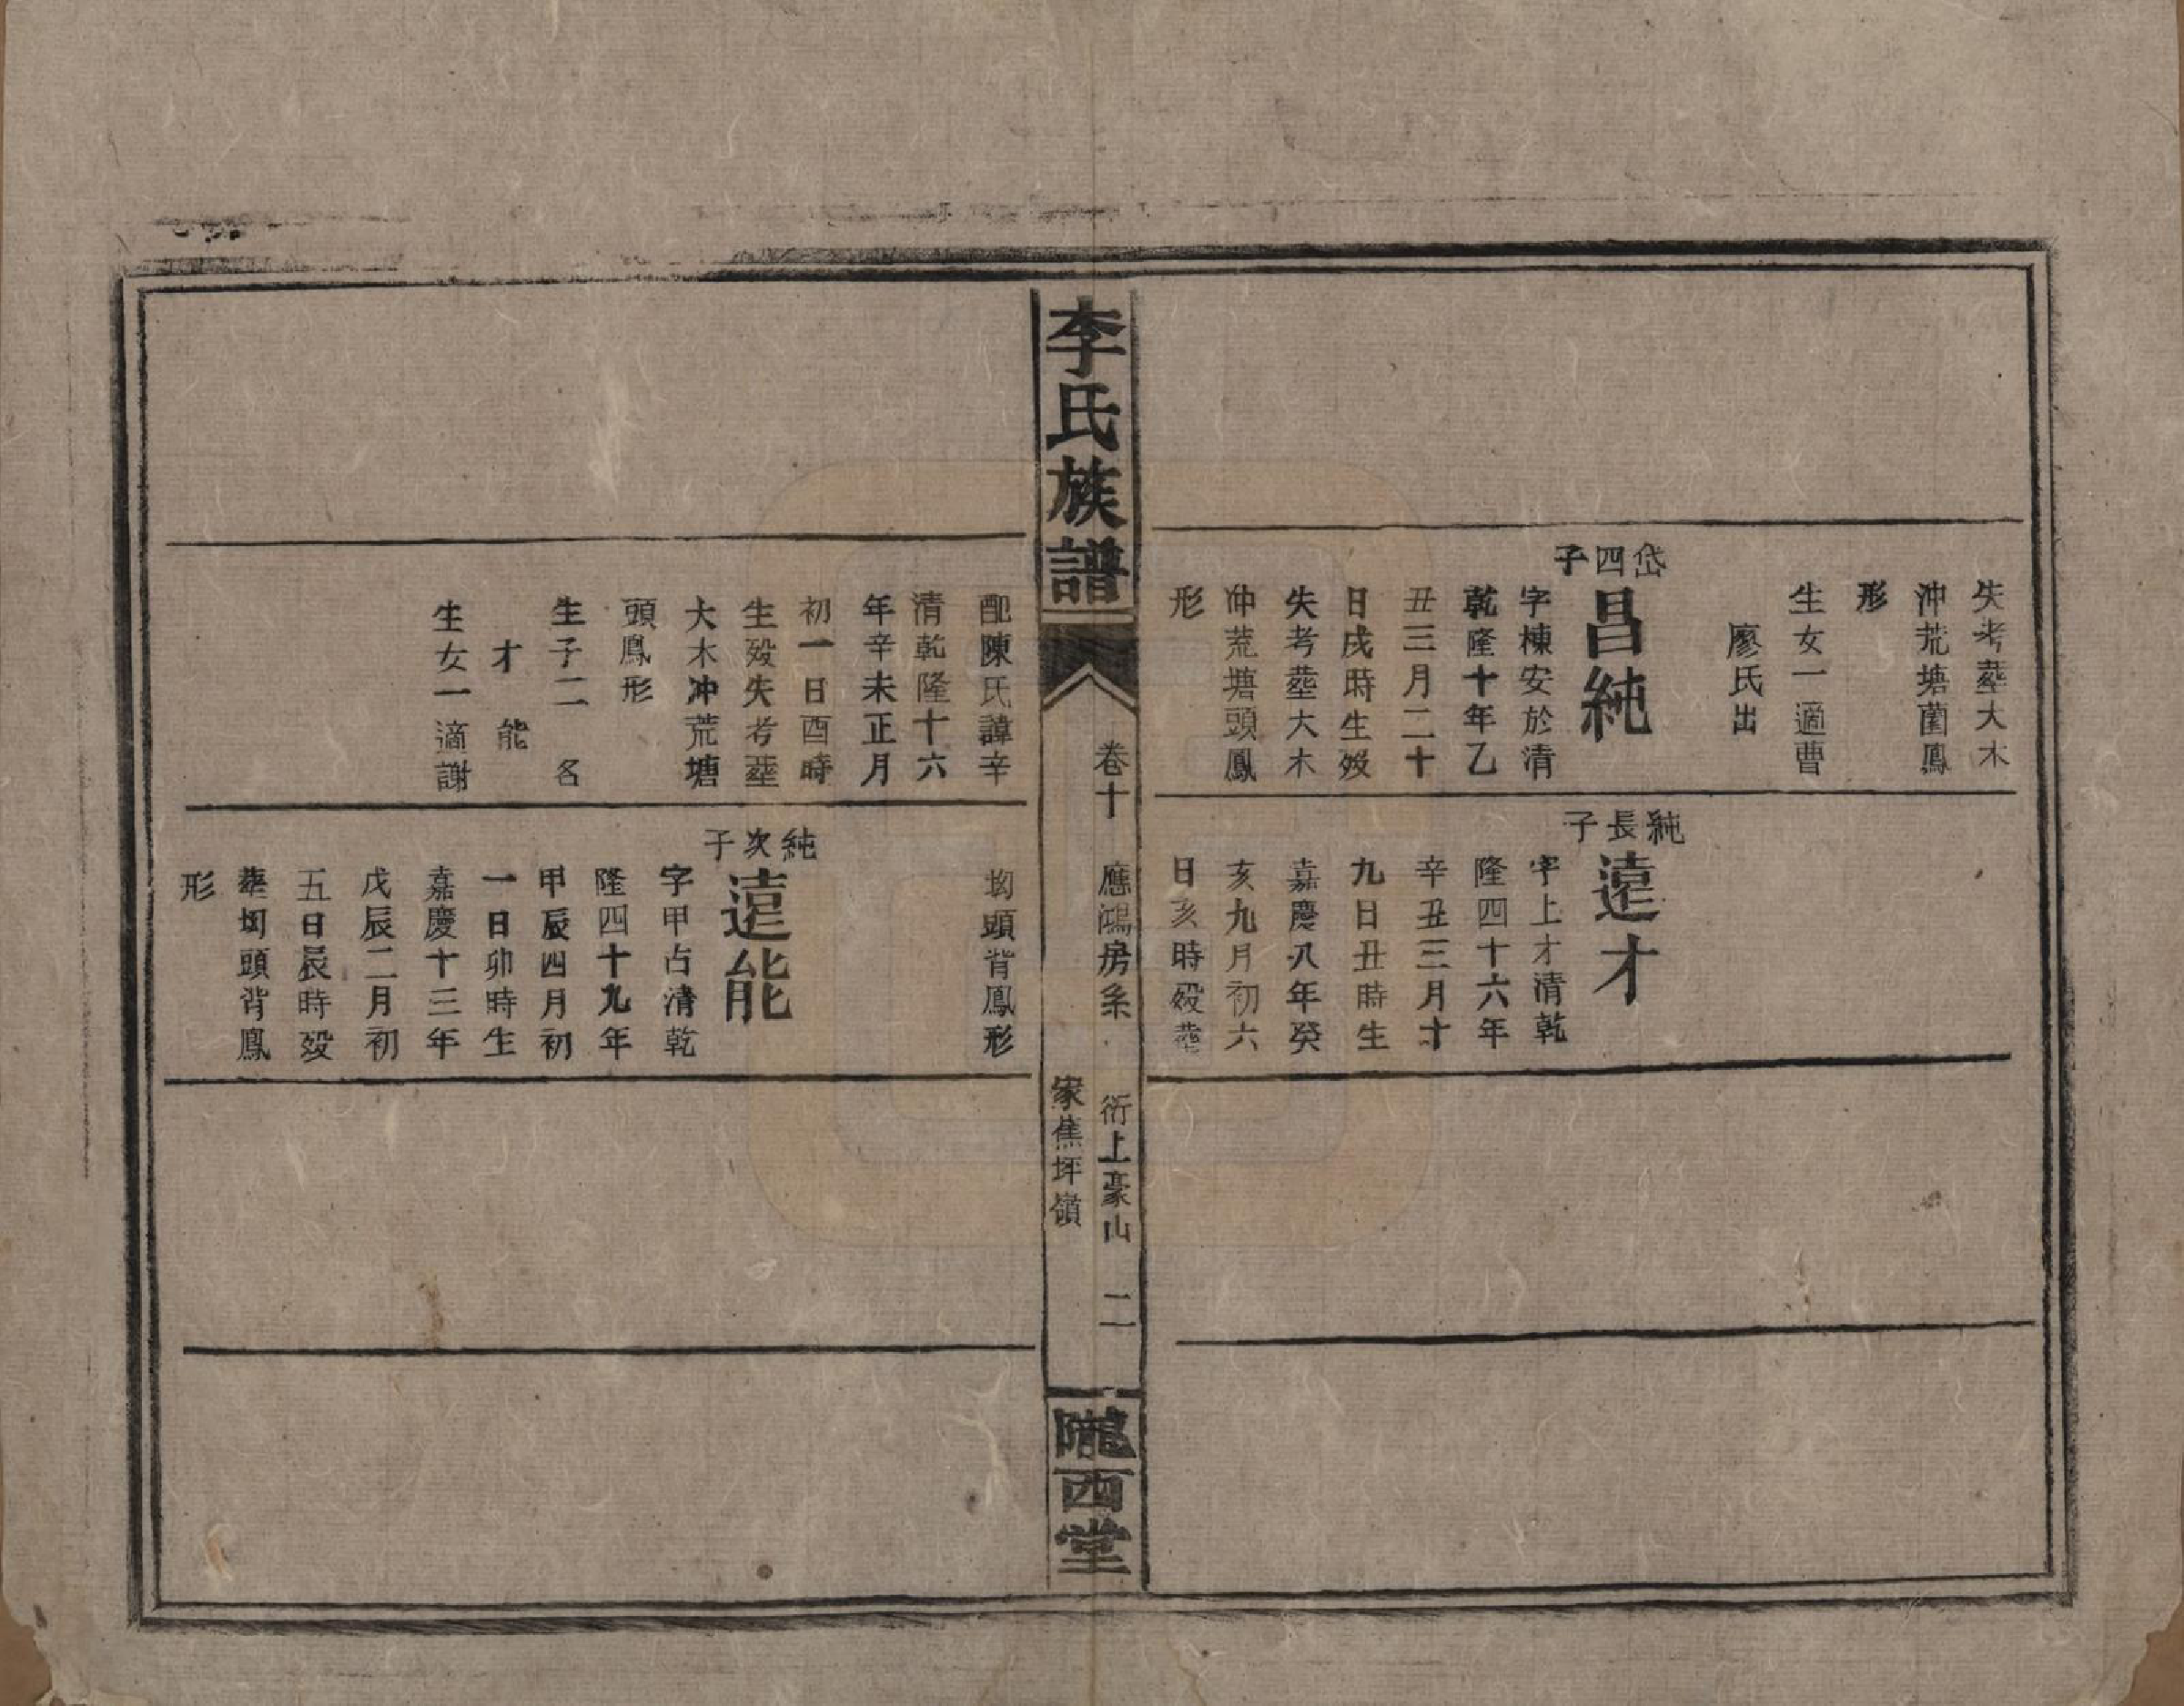 失考塟大木
沖荒塘菌鳳
形
生女一適曹
廖氏出
岱四子
昌純
字棟安於清
乾隆十年乙
丑三月二十
日戌時生歿
失考塟大木
仲荒塘頭鳳
形
純長子
遠才
字上才清乾
隆四十六年
辛丑三月十
九日丑時生
嘉慶八年癸
亥九月初六
日亥時歿塟
李氏族譜
卷十
應鴻房系
衍上豪山
家蕉坪嶺
二
隴西堂
配陳氏諱辛
清乾隆十六
年辛未正月
初一日酉時
生歿失考塟
大木冲荒塘
頭鳳形
生子二 名
才 能
生女一適謝
坳頭背鳳形
純次子
遠能
字甲占清乾
隆四十九年
甲辰四月初
一日卯時生
嘉慶十三年
戊辰二月初
五日辰時歿
塟坳頭背鳳
形